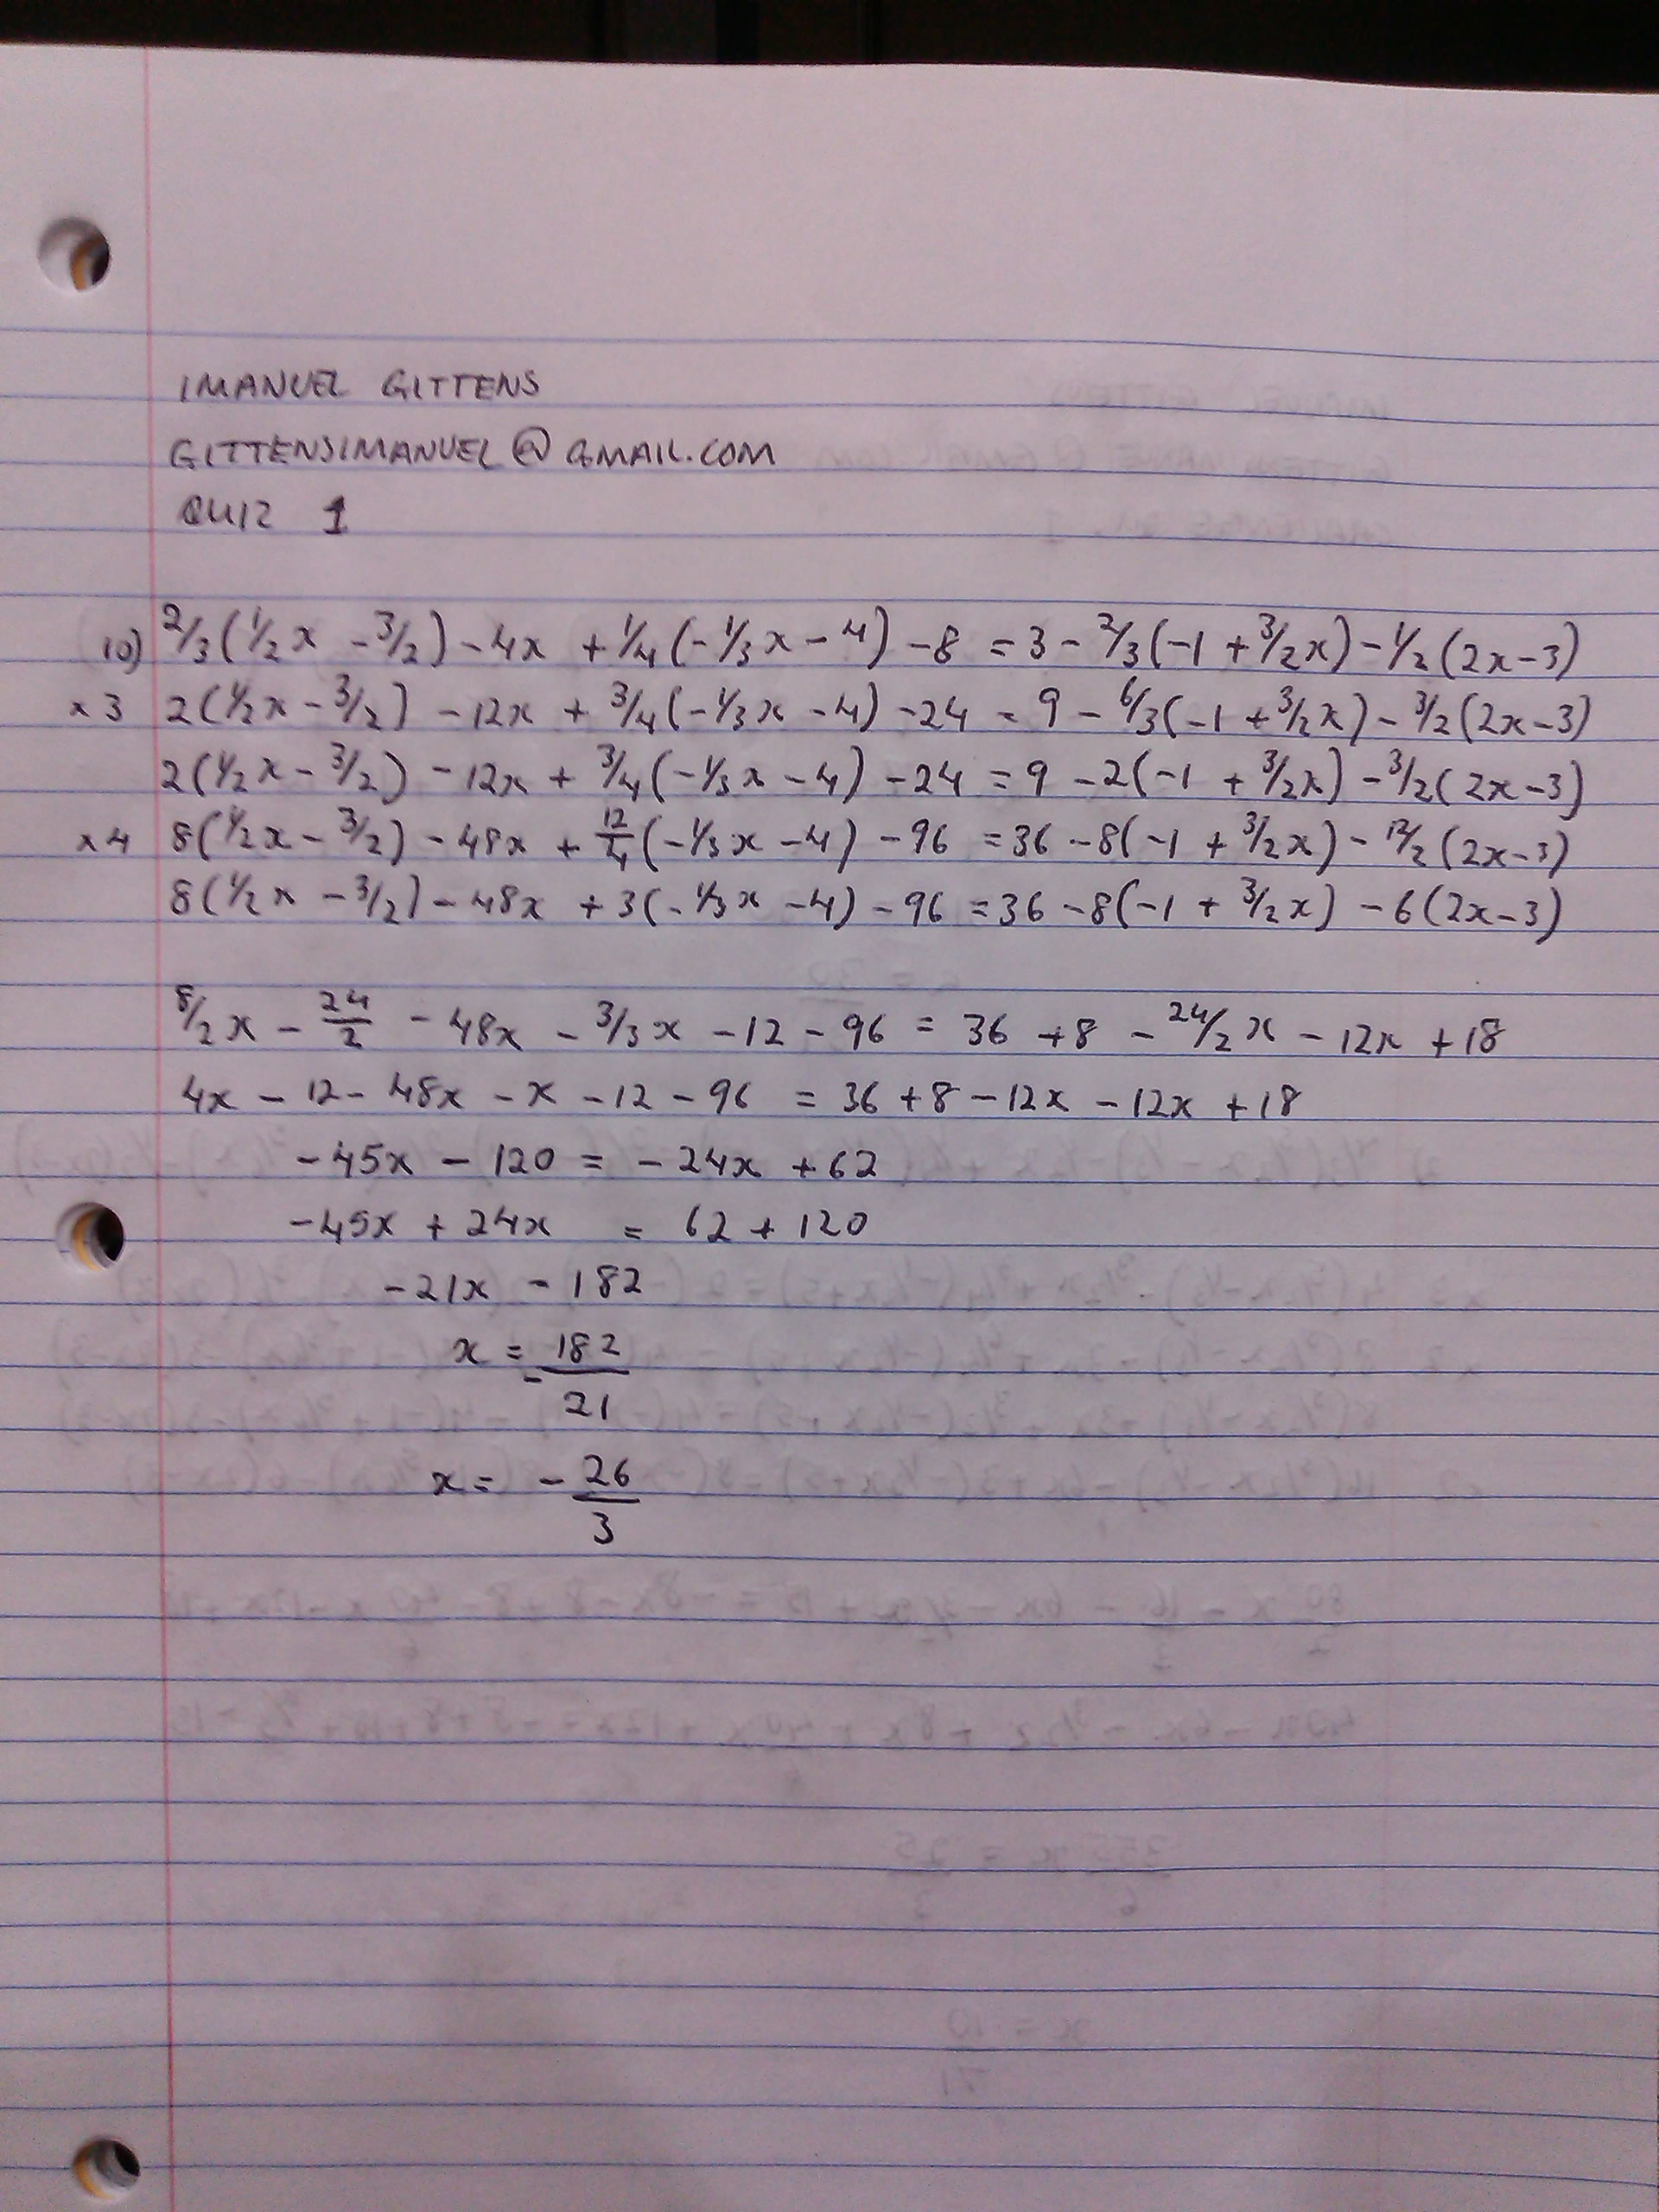 IMANUEL GITTENS
GITTENSIMANUEL@GMAIL.COM
QUIZ 1
10) 2/3(1/2x - 3/2) - 4x + 1/4(-1/3x - 4) - 8 = 3 - 2/3(-1 + 3/2x) - 1/2(2x - 3)
x3 2(1/2x - 3/2) - 12x + 3/4(-1/3x - 4) - 24 = 9 - 6/3(-1 + 3/2x) - 3/2(2x - 3)
2(1/2x - 3/2) - 12x + 3/4(-1/3x - 4) - 24 = 9 - 2(-1 + 3/2x) - 3/2(2x - 3)
x4 8(1/2x - 3/2) - 48x + 12/4(-1/3x - 4) - 96 = 36 - 8(-1 + 3/2x) - 12/2(2x - 3)
8(1/2x - 3/2) - 48x + 3(-1/3x - 4) - 96 = 36 - 8(-1 + 3/2x) - 6(2x - 3)
8/2x - 24/2 - 48x - 3/3x - 12 - 96 = 36 + 8 - 24/2x - 12x + 18
4x - 12 - 48x - x - 12 - 96 = 36 + 8 - 12x - 12x + 18
-45x - 120 = -24x + 62
-45x + 24x = 62 + 120
-21x - 182
x = -182/21
x = -26/3